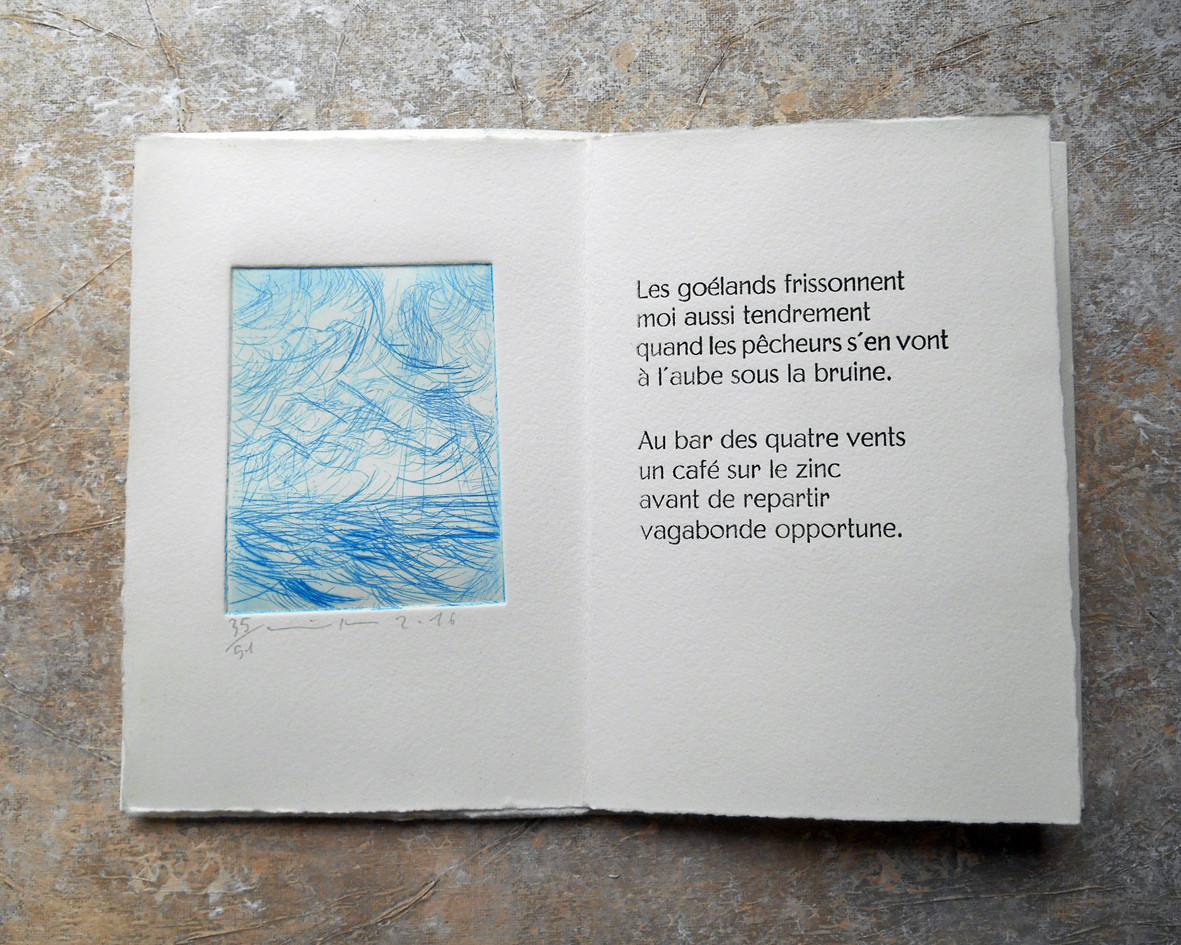 35
91
2.16
Les goélands frissonnent
moi aussi tendrement
quand les pêcheurs s´en vont
à l´aube sous la bruine.
Au bar des quatre vents
un café sur le zinc
avant de repartir
vagabonde opportune.